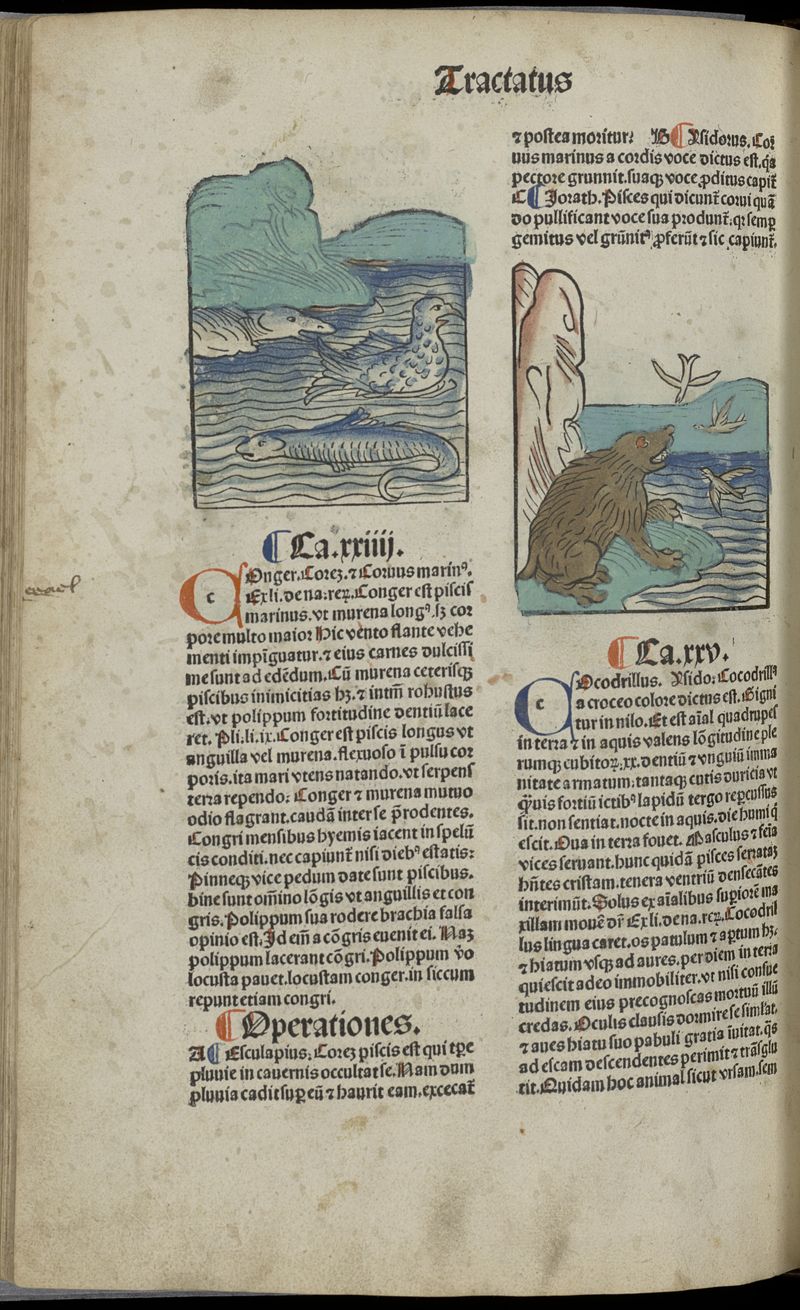 Tractatus
Ca.xxiiij.
COnger.Corez.⁊ Coruus marinꝰ.
Ex li.de na:reꝝ.Conger est piscis
marinus.vt murena longꝰ.sꝫ cor
pore multo maior Hic vento flante vehe
menti impīguatur.⁊ eius carnes dulcissi
me sunt ad edēdum.Cū murena ceterisqꝫ
piscibus inimicitias hꝫ.⁊ intm̄ robustus
est.vt polippum fortitudine dentiū lace
ret. Pli.li.ix.Conger est piscis longus vt
anguilla vel murena.flexuoso ī pulsu cor
poris.ita mari vtens natando.vt serpens
terra rependo: Conger ⁊ murena mutuo
odio flagrant.caudā inter se p̄rodentes.
Congri mensibus hyemis iacent in spelū
cis conditi.nec capiunt̄ nisi diebꝰ estatis:
Pinneqꝫ vice pedum date sunt piscibus.
bine sunt om̄ino lōgis vt anguillis et con
gris.Polippum sua rodere brachia falsa
opinio est.Id em̄ a cōgris euenit ei. Naꝫ
polippum lacerant cōgri.Polippum v̄o
locusta pauet.locustam conger.in siccum
repunt etiam congri.
Operationes.
A Esculapius: Corez piscis est qui tꝑe
pluuie in cauernis occultat se.Nam dum
pluuia cadit suꝑ eū ⁊ haurit eam.excecat̄
⁊ postea moritur: B Ysidorus.Cor
uus marinus a cordis voce dictus est.q̄a
pectore grunnit.suaqꝫ voce ꝓditus capit̄
C Jorath.Pisces qui dicunt̄ corui quā
do pullificant voce sua produnt̄.qꝛ semꝑ
gemitus vel grūnitꝰ ꝓferūt ⁊ sic capiunt̄.
Ca.xxv.
COcodrillus. Ysido: Cocodrillꝰ
a croceo colore dictus est.Gigni
tur in nilo.Et est aīal quadrupes
in terra ⁊ in aquis valens lōgitudine ple
rumqꝫ cubitoꝝ.xx.dentiū ⁊ vnguiū imma
nitate armatum:tantaqꝫ cutis duricia vt
q̄uis fortiū ictibꝰ lapidū tergo repercussus
sit.non sentiat.nocte in aquis.die humi q̇
escit.Oua in terra fouet. Masculus ⁊ feīa
vices seruant.hunc quidā pisces serratāꝫ
hn̄tes cristam.tenera ventriū densecātes
interimūt.Solus ex aīalibus suꝑiorē ma
xillam mouē dr̄ Ex li.de na.reꝝ.Cocodril
lus lingua caret.os patulum ⁊ aptum hꝫ.
⁊ hiatum vsqꝫ ad aures.per diem in terra
quiescit adeo immobiliter.vt nisi consue
tudinem eius precognoscas mortuū illū
credas. Oculis clausis dormire se simlat.
⁊ aues hiatu suo pabuli gratia īuitat.q̄s
ad escam descendentes perimit ⁊ trāsglu
tit.Quidam hoc animal sicut vrsam.sem